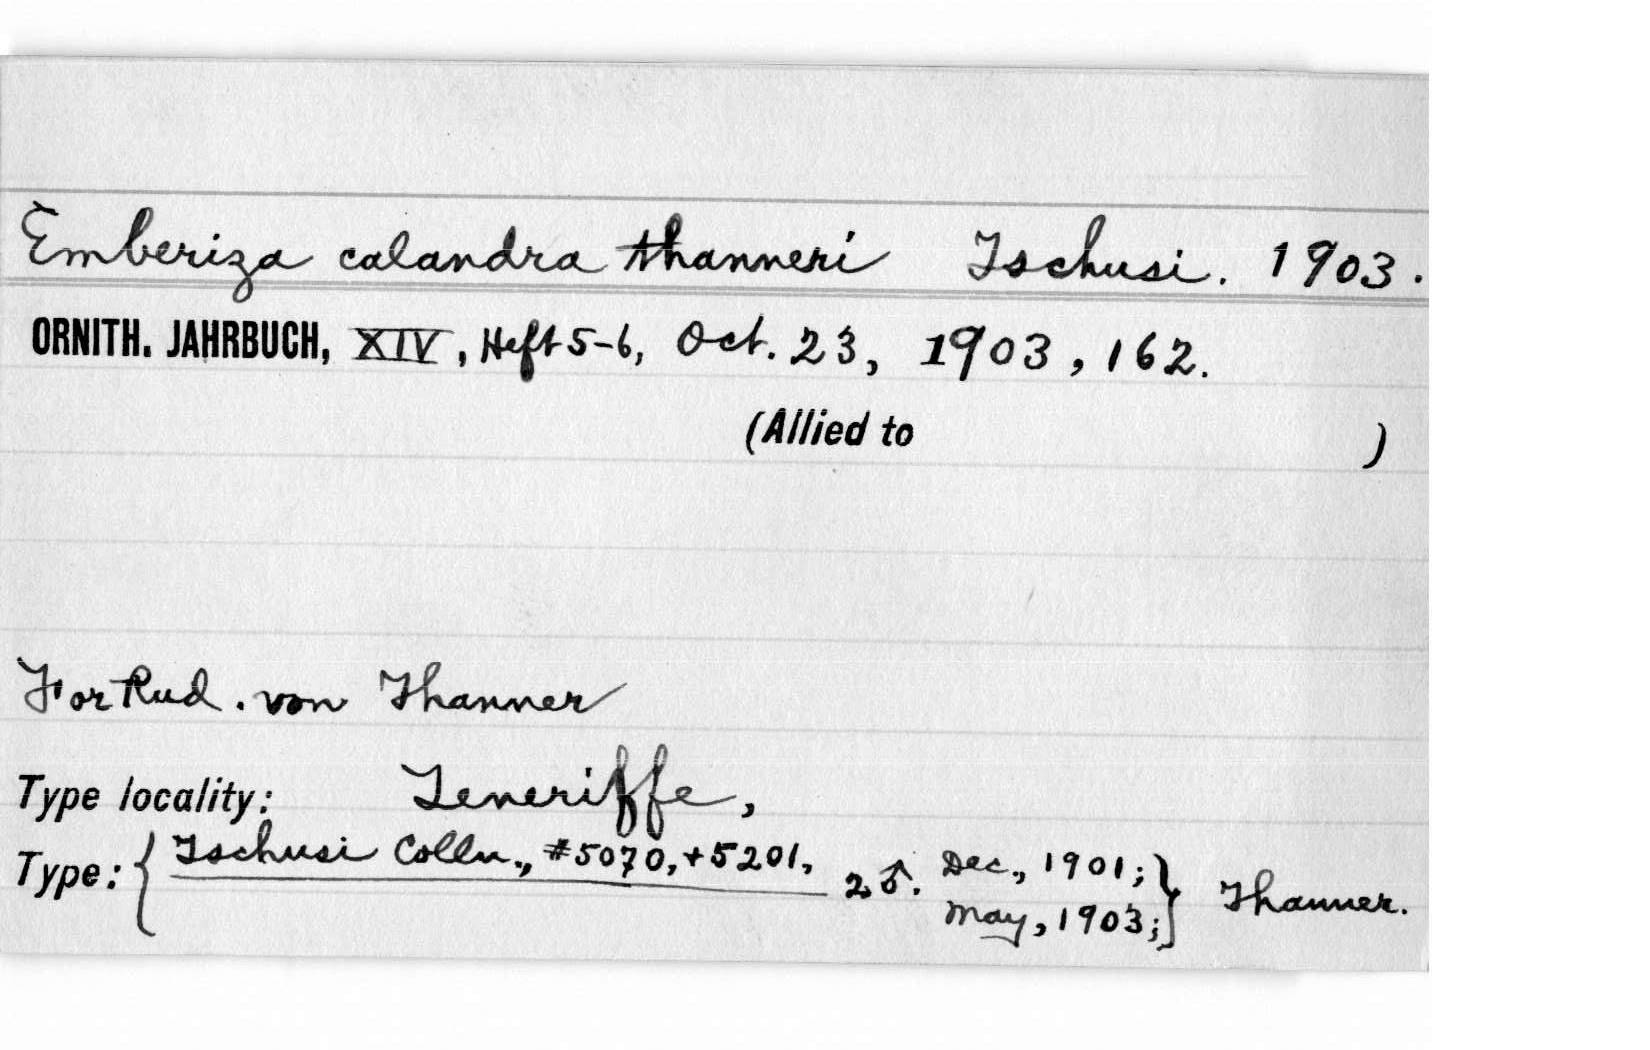 Emberiza calandra thanneri Tschusi. 1903.
ORNITH. JAHRBUCH, XIV, Heft 5-6, Oct. 23, 1903, 162.
(Allied to )
For Rud. von Thanner
Type locality: Teneriffe,
Type: { Tschusi Colln., #5070, + 5201, 2 ♂. Dec., 1901; } Thanner.
May, 1903;